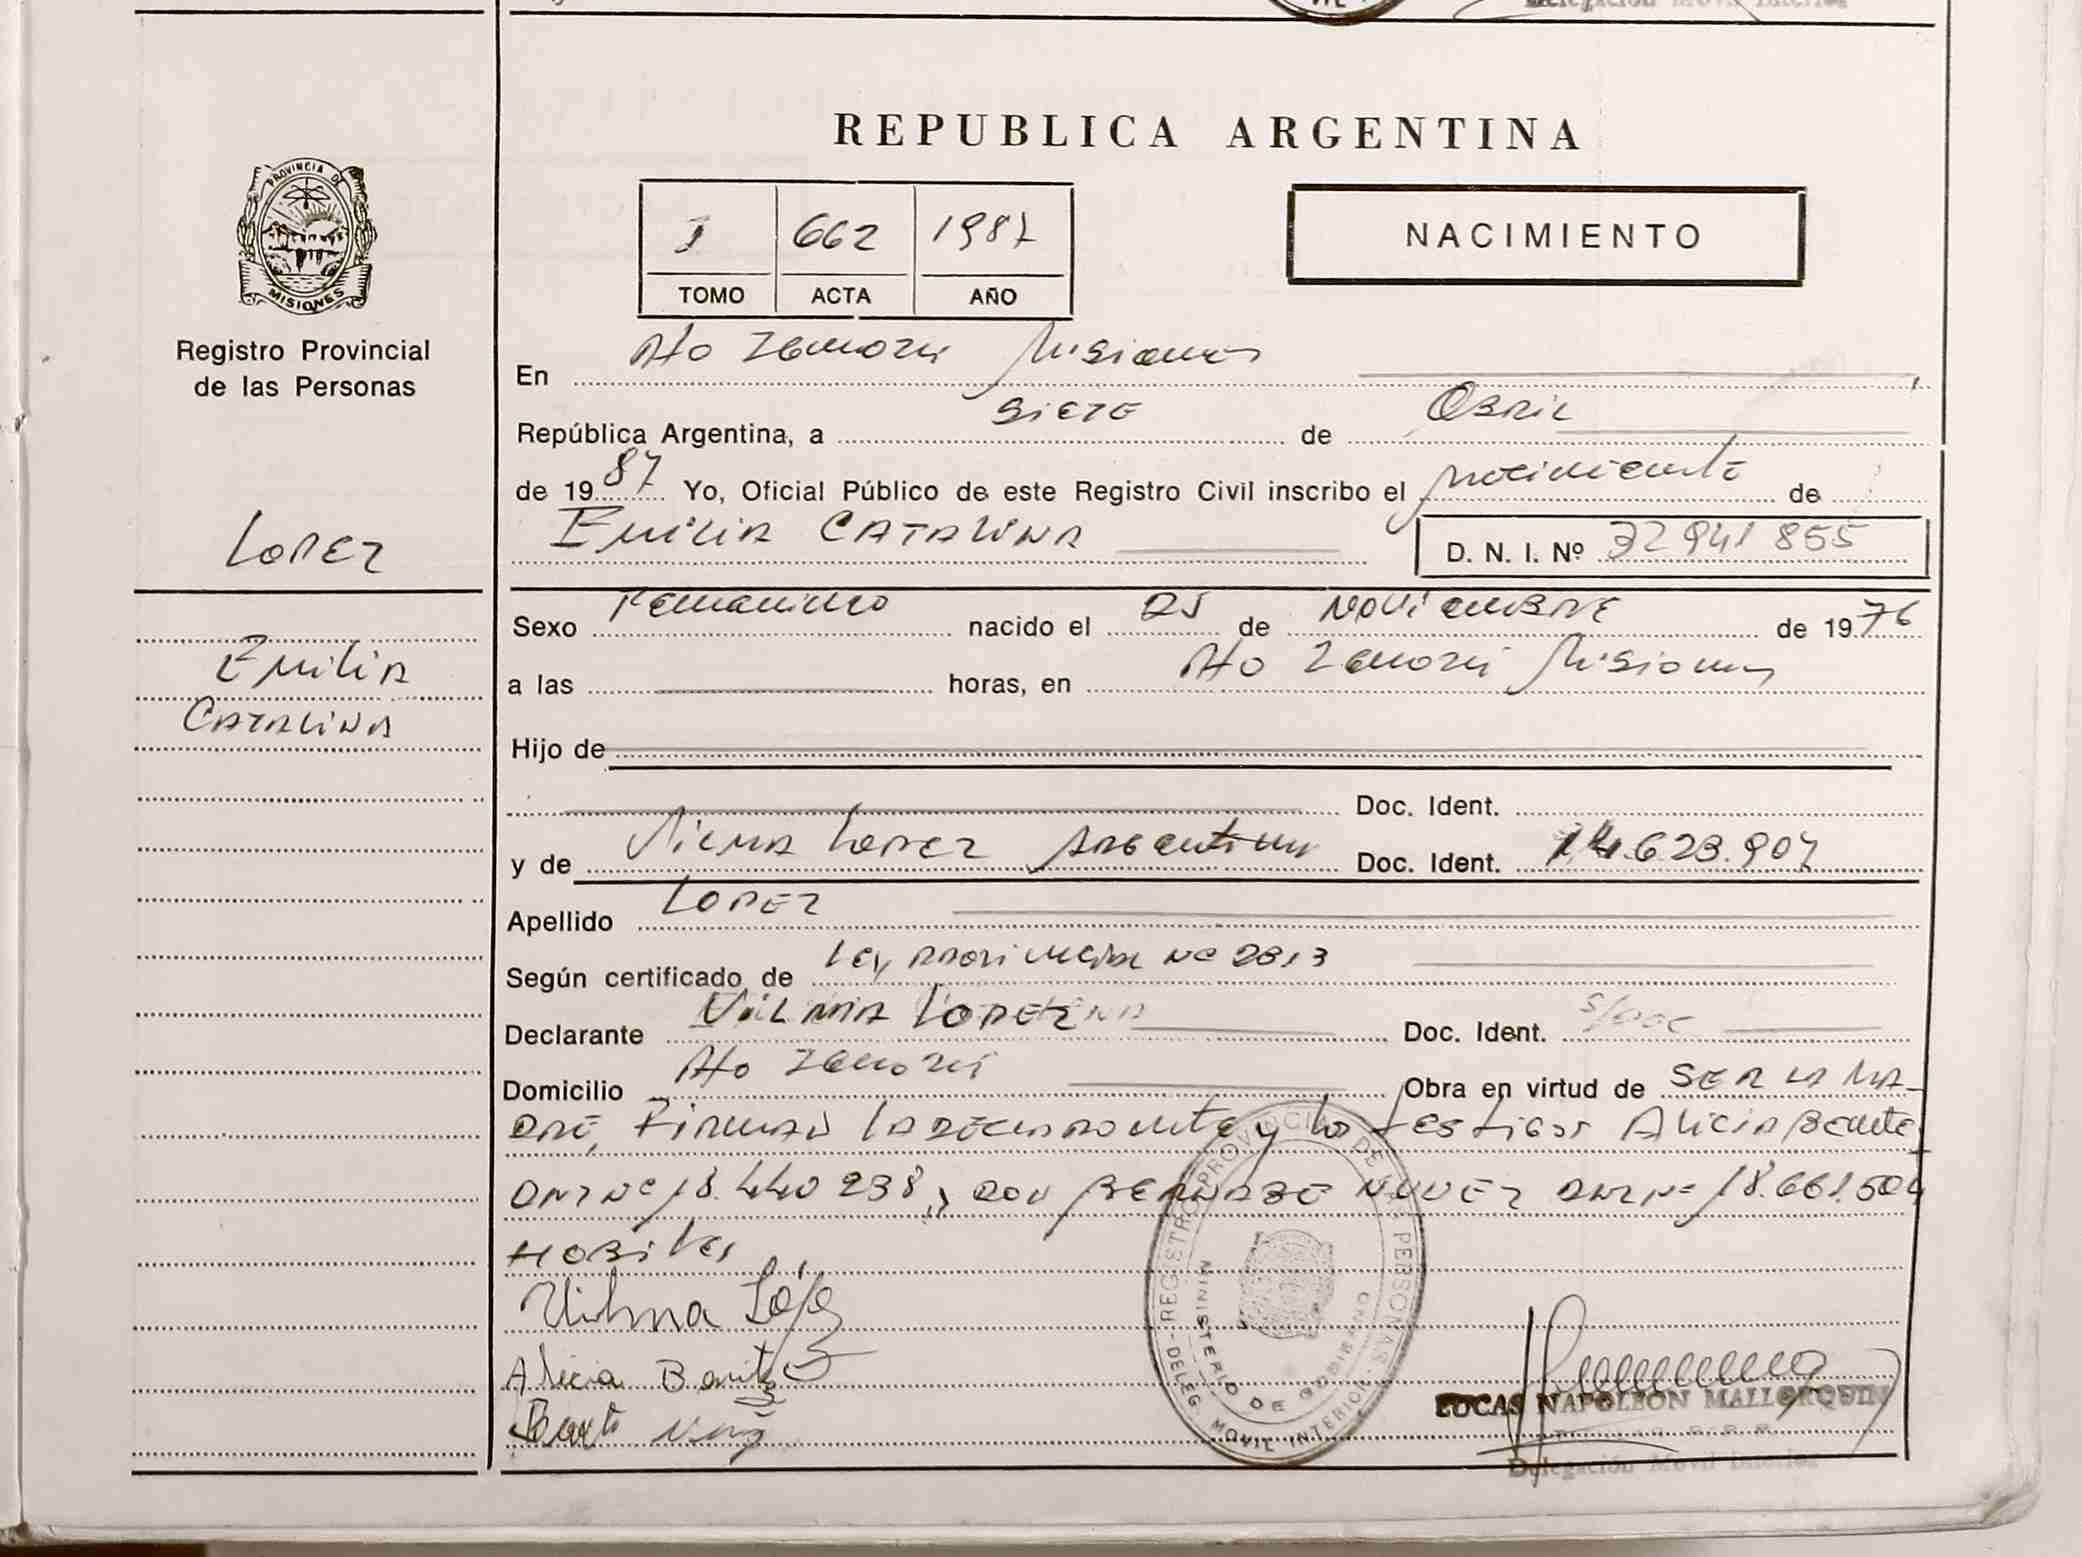 REPUBLICA ARGENTINA
PROVINCIA DE
MISIONES
Registro Provincial
de las Personas
I 662 1987
TOMO ACTA AÑO
NACIMIENTO
En Misiones
República Argentina, a SiETE de Abril
de 1987 Yo, Oficial Público de este Registro Civil inscribo el nacimiento de
EMiLiA CATALiNA D. N. I. Nº 32 941 855
LOPEZ
EMiLiA
CATALiNA
Sexo Femenino nacido el 25 de NOViEMBRE de 1976
a las horas, en Misiones
Hijo de
Doc. Ident.
y de LOPEZ Argentina Doc. Ident. 14.623.907
Apellido LOPEZ
Según certificado de Ley Provincial Nº 2813
Declarante ViLMA LOPEZ Doc. Ident. S/DOC
Domicilio Obra en virtud de SER LA MA-
DRE, FiRMAN LA DECLARANTE y los testigos ALiCiA
DNI Nº 18.440 238, DON BERNABE NUÑEZ DNI Nº 18.661.504
HABiLES
Vilma López
Alicia
REGISTRO PROVINCIAL DE LAS PERSONAS
MINISTERIO DE GOBIERNO
DELEG. MOVIL INTERIOR
LUCAS NAPOLEON MALLORQUIN
Delegación Movil Interior